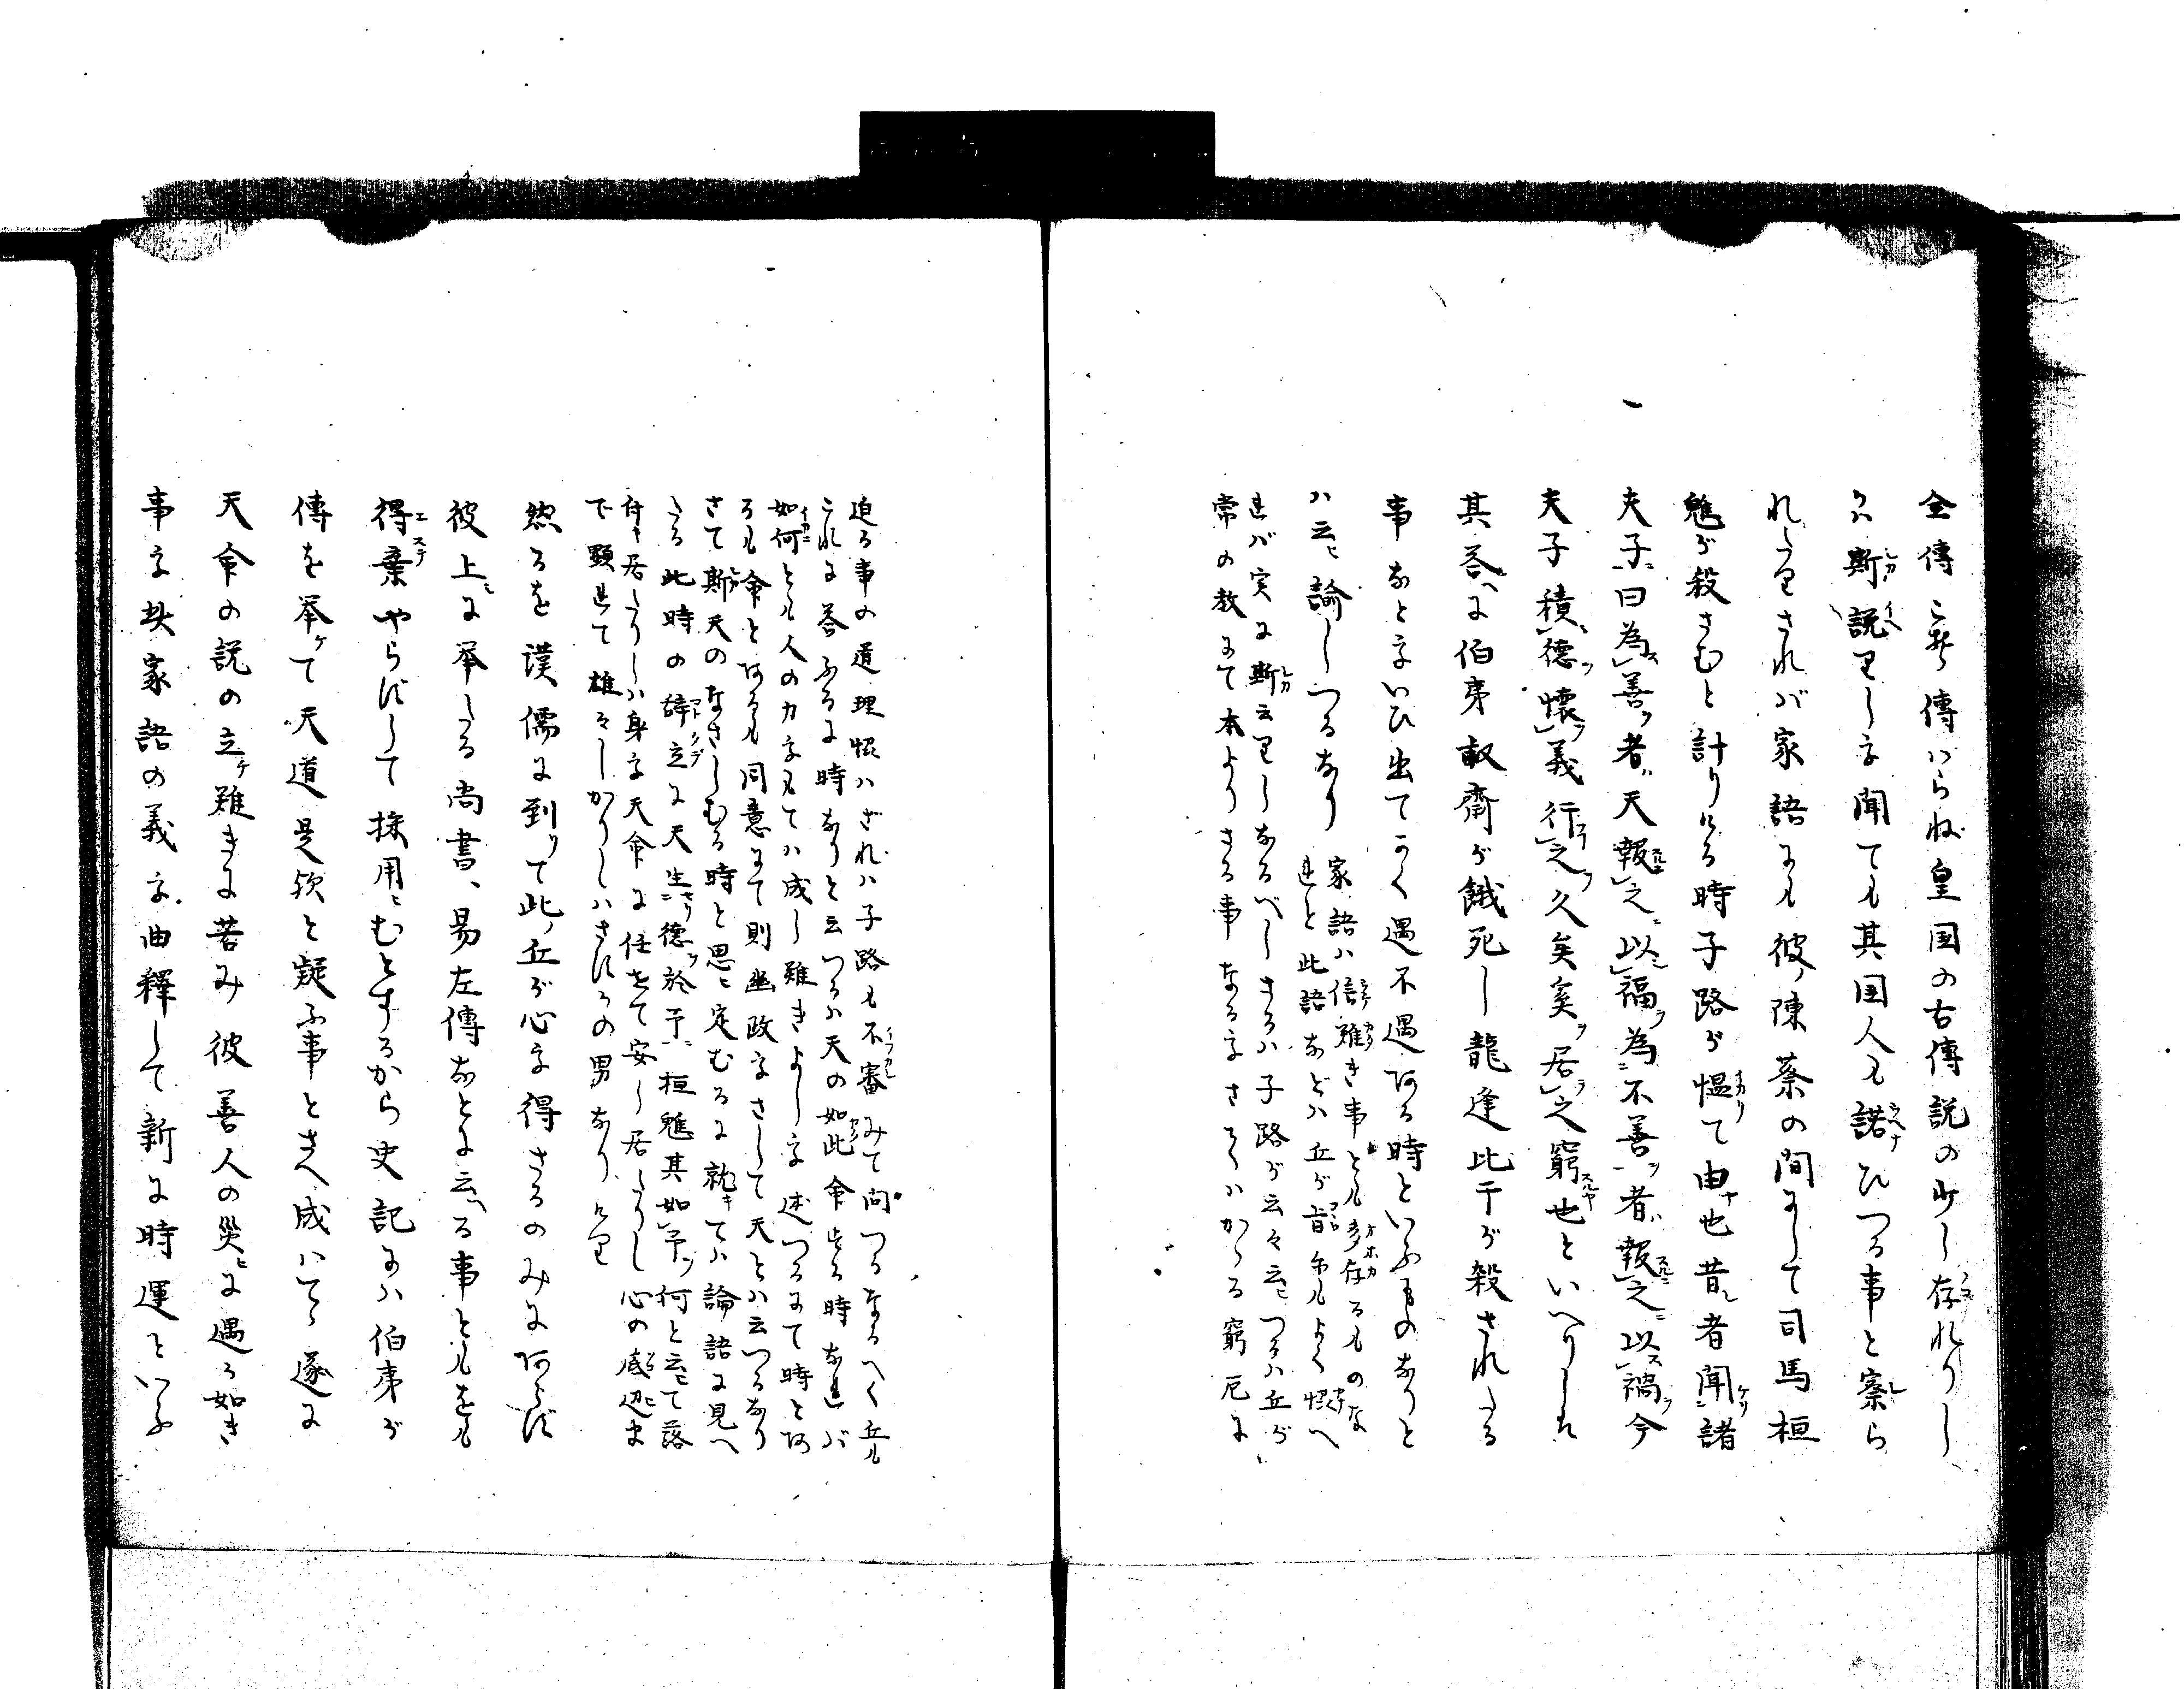 全傳こそ傳はらね皇国の古傳説の少し存れりし
かハ斯説りし事を聞ても其国人も諾ひつる事と察ら
れたりされバ家語にも彼陳蔡の間にして司馬桓
魋が殺さむと計りける時子路が慍て由也昔者聞諸
夫子曰為善者天報之以福為不善者報之以禍今
夫子積德懐義行之久矣奚居之窮也といへりしに
其答へに伯夷叔齋が餓死し龍逢比干が殺されたる
事などをいひ出てかく遇不遇ある時といふものなりと
ハ云ヒ諭しつるなり 家語ハ信難き事ども多存るものな
れど此語などハ丘が旨尓もよく惬へ
れバ実に斯云りしなるべしさるハ子路が云々云ヒつるハ丘が
常の教にて本よりさる事なるをさてハかゝる窮厄に
迫る事の道理惬ハざれハ子路も不審みて問つるなるへく丘も
これに答ふるに時なりと云つるハ天の如此命せる時なれバ
如何とも人の力をもてハ成し難きよしを述つるにて時とあ
るも命とあるも同意にて則幽政をさして天とハ云つるなり
さて斯天のなさしむる時と思ヒ定むるに就てハ論語に見へ
たる此時の辞立に天生德於予桓魋其如予何と云て落
付キ居たりしハ身を天命に任せて安し居たりし心の底迄ま
で顕れて雄々しかりしハさすかの男なりけり
然るを漢儒に到りて此丘が心を得さるのみにあらず
彼上に挙たる尚書、易左傳などに云へる事ともをも
得棄やらずして採用ヒむとするから史記にハ伯夷が
傳を挙ケて天道是欤と疑ふ事とさへ成ハてゝ遂に
天命の説の立ケ難きに苦み彼善人の災ヒに遇る如き
事を放家語の義を曲釋して新に時運といふ